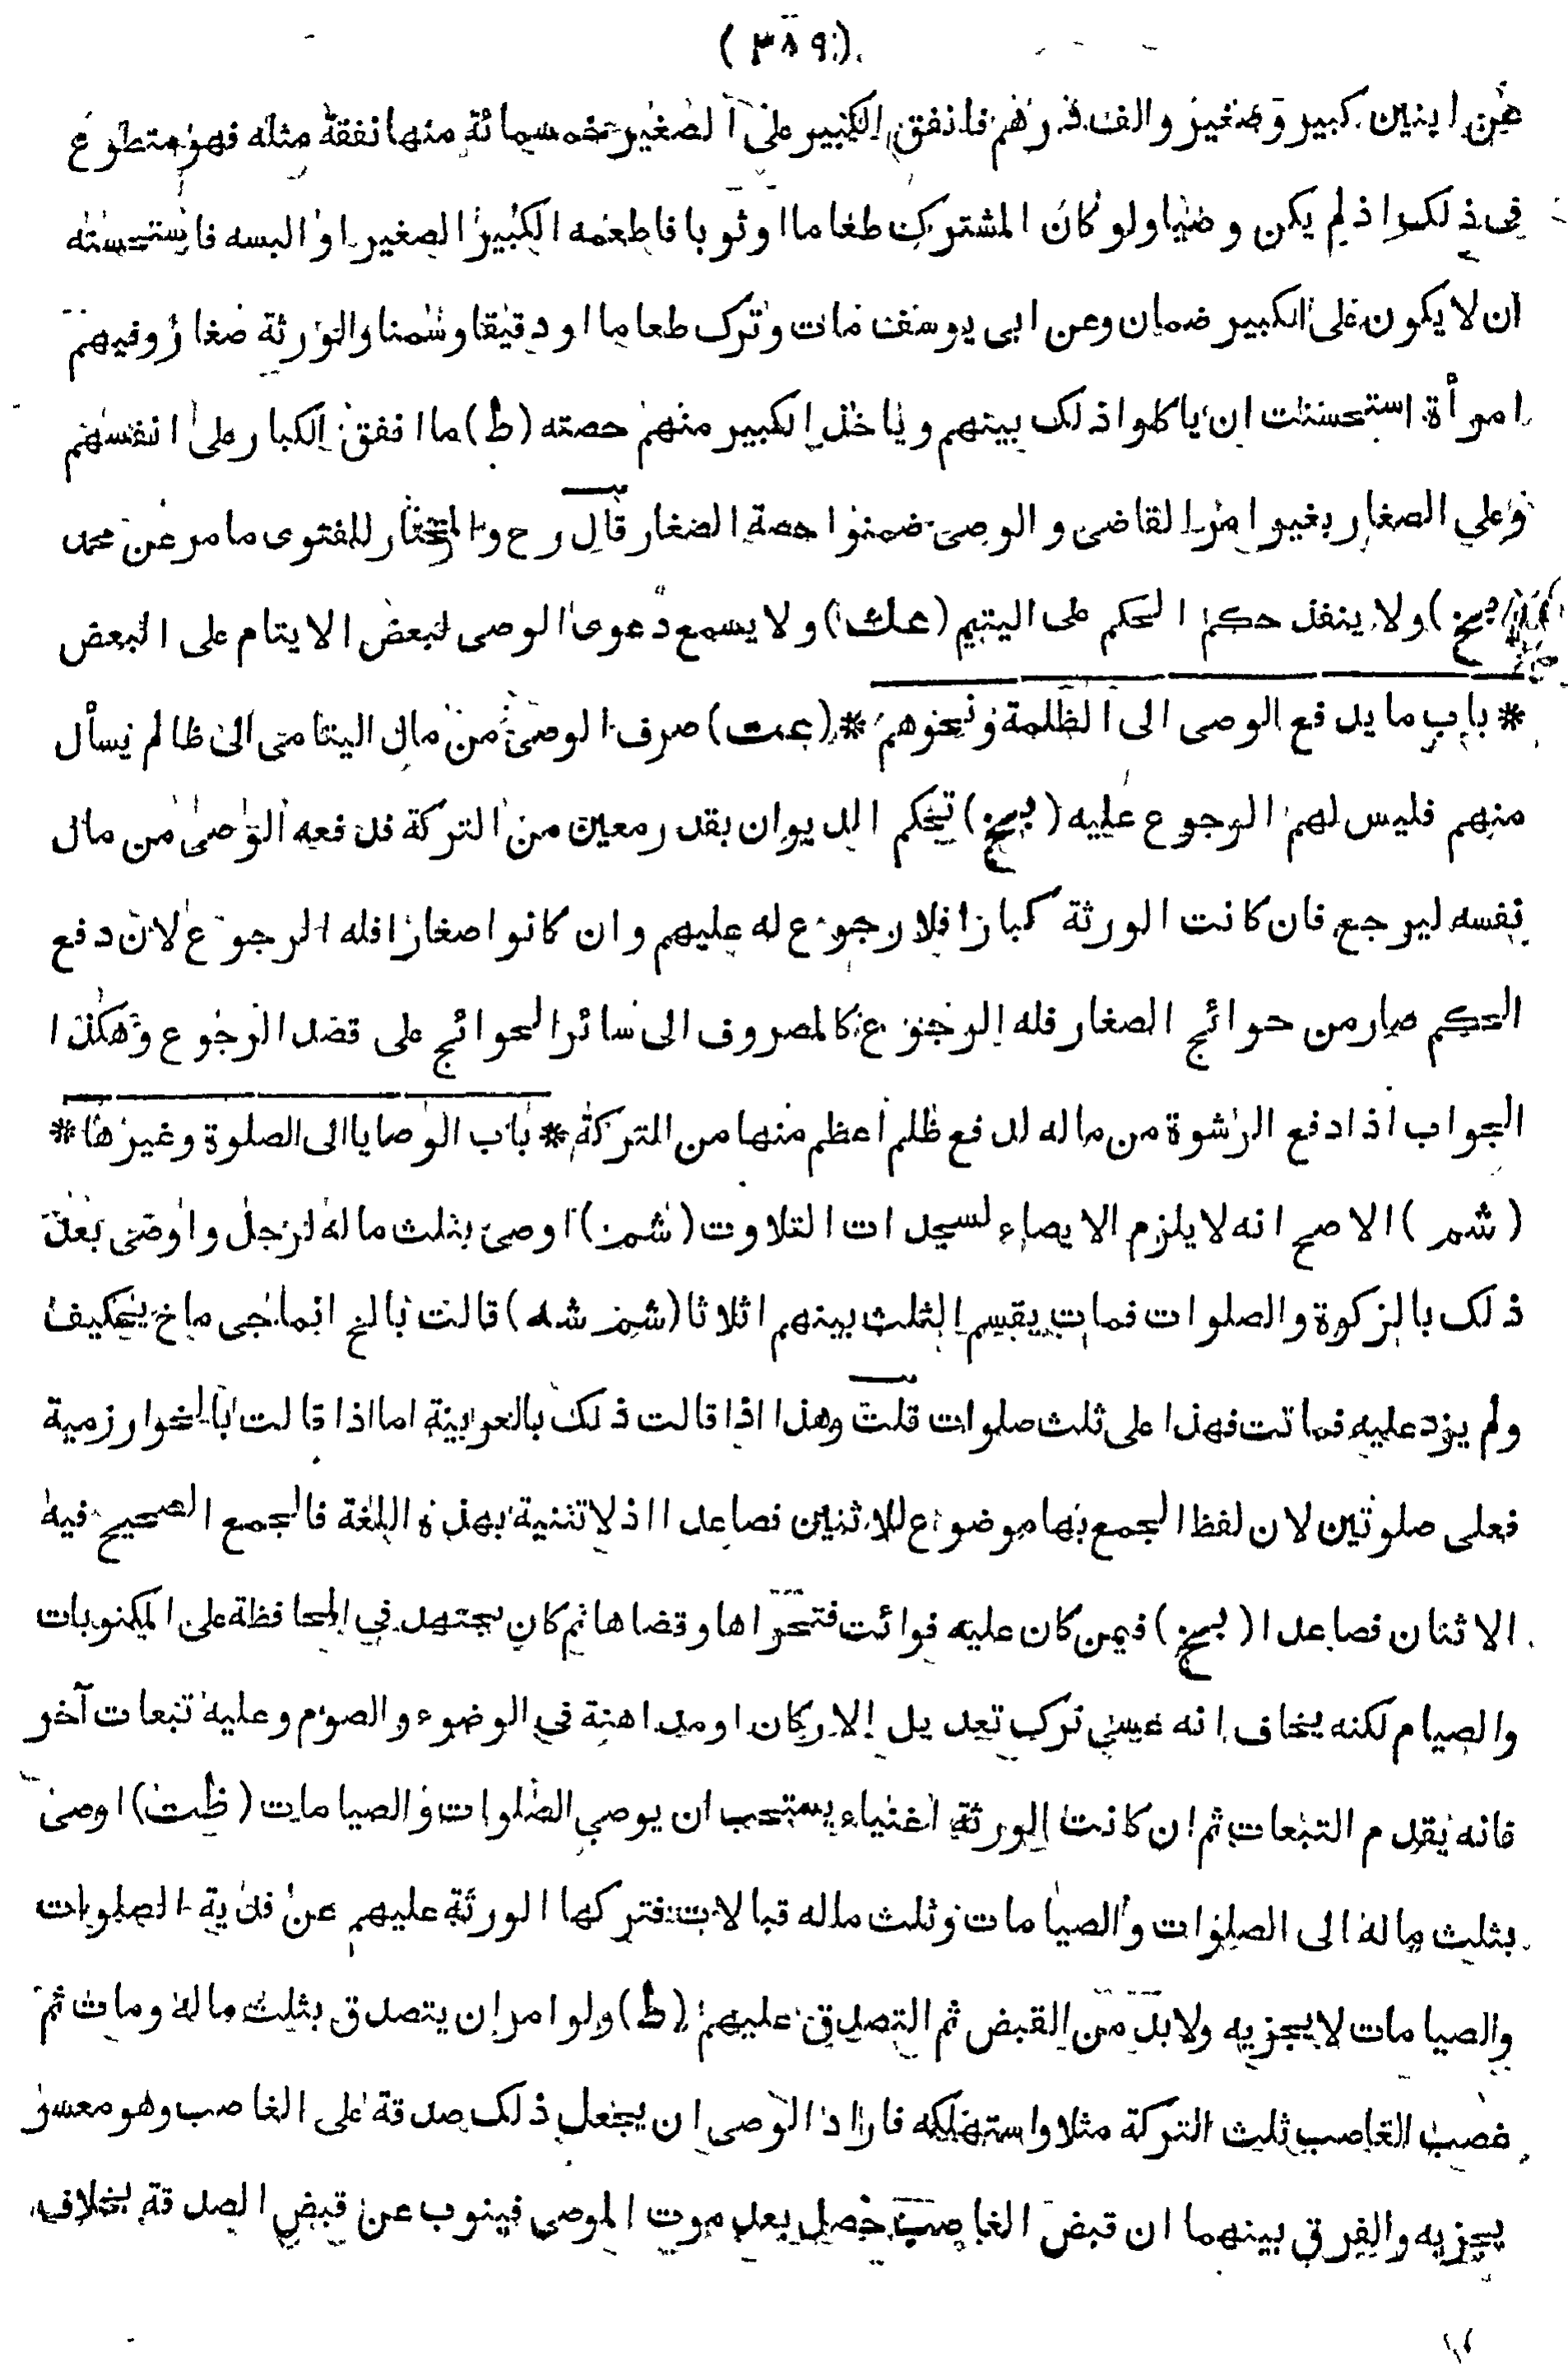 (٣٨٩)
عن ابنين كبير وصغير والف درهم فانفق الكبير على الصغير خمسمائة منها نفقة مثله فهو متطوع
فى ذلك اذ لم يكن وصيا ولو كان المشترك طعاما اوثوبا فاطعمه الكبير الصغير او البسه فاستحسنته
ان لا يكون على الكبير ضمان وعن ابى يوسف مات وترك طعاما او دقيقا وسمنا والورثة صغار وفيهم
امرأة استحسنت ان ياكلوا ذلك بينهم وياخذ الكبير منهم حصته (ط) ما انفق الكبار على انفسهم
وعلى الصغار بغير امر القاضى والوصى ضمنوا حصة الصغار قال رح والمختار للفتوى مامر عن محمد
بخ) ولا ينفذ حكم الحكم على اليتيم (عك) ولا يسمع دعوى الوصى لبعض الايتام على البعض
* باب ما يدفع الوصى الى الظلمة ونحوهم * (عت) صرف الوصى من مال اليتامى الى ظالم يسأل
منهم فليس لهم الرجوع عليه (بخ) تحكم الديوان بقدر معين من التركة فدفعه الوصى من مال
نفسه ليرجع فان كانت الورثة كبارا فلا رجوع له عليهم وان كانوا صغارا فله الرجوع لان دفع
الحكم صار من حوائج الصغار فله الرجوع كالمصروف الى سائر الحوائج على قصد الرجوع وهكذا
الجواب اذا دفع الرشوة من ماله لدفع ظلم اعظم منها من التركة * باب الوصايا الى الصلوة وغيرها *
(شم) الاصح انه لا يلزم الايصاء لسجدات التلاوت (شمز) اوصى بثلث ماله لرجل واوصى بعد
ذلك بالزكوة والصلوات فمات يقسم الثلث بينهم اثلاثا (شمز شه) قالت
ولم يزد عليه فماتت فهذا على ثلث صلوات قلت وهذا اذا قالت ذلك بالعربية اما اذا قالت بالخوارزمية
فعلى صلوتين لان لفظ الجمع بها موضوع للاثنين فصاعدا اذ لا تثنية بهذه اللغة فالجمع الصحيح فيه
الاثنان فصاعدا (بخ) فيمن كان عليه فوائت فتحراها وقضاها ثم كان يجتهد فى المحافظة على المكتوبات
والصيام لكنه يخاف انه عسى ترك تعديل الاركان او مداهنة فى الوضوء والصوم وعليه تبعات آخر
فانه يقدم التبعات ثم ان كانت الورثة اغنياء يستحب ان يوصى الصلوات والصيامات (ظت) اوصى
بثلث ماله الى الصلوات والصيامات وثلث ماله قبالات فتركها الورثة عليهم عن فدية الصلوات
والصيامات لا يجزيه ولا بد من القبض ثم التصدق عليهم (ط) ولو امر ان يتصدق بثلث ماله ومات ثم
غصب الغاصب ثلث التركة مثلا واستهلكه فاراد الوصى ان يجعل ذلك صدقة على الغاصب وهو معسر
يجزيه والفرق بينهما ان قبض الغاصب حصل بعد موت الموصى فينوب عن قبض الصدقة بخلاف